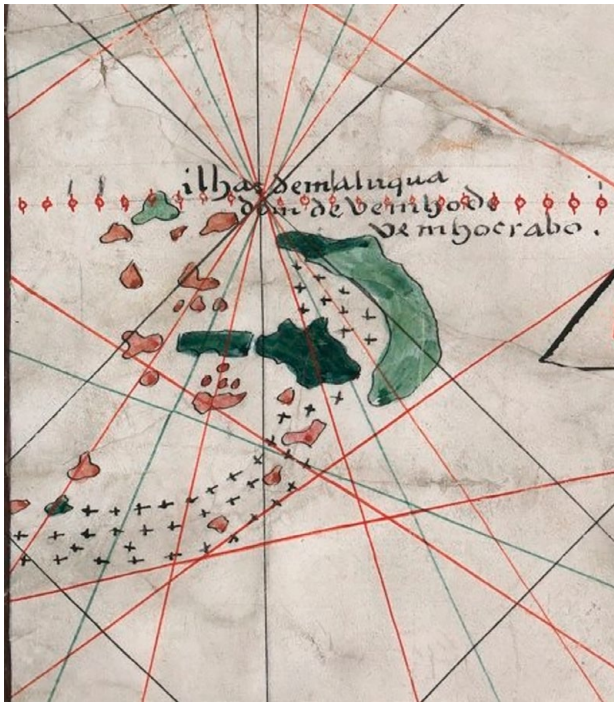 ilhas de maluqua
dom de vem ho de
vem ho crabo.